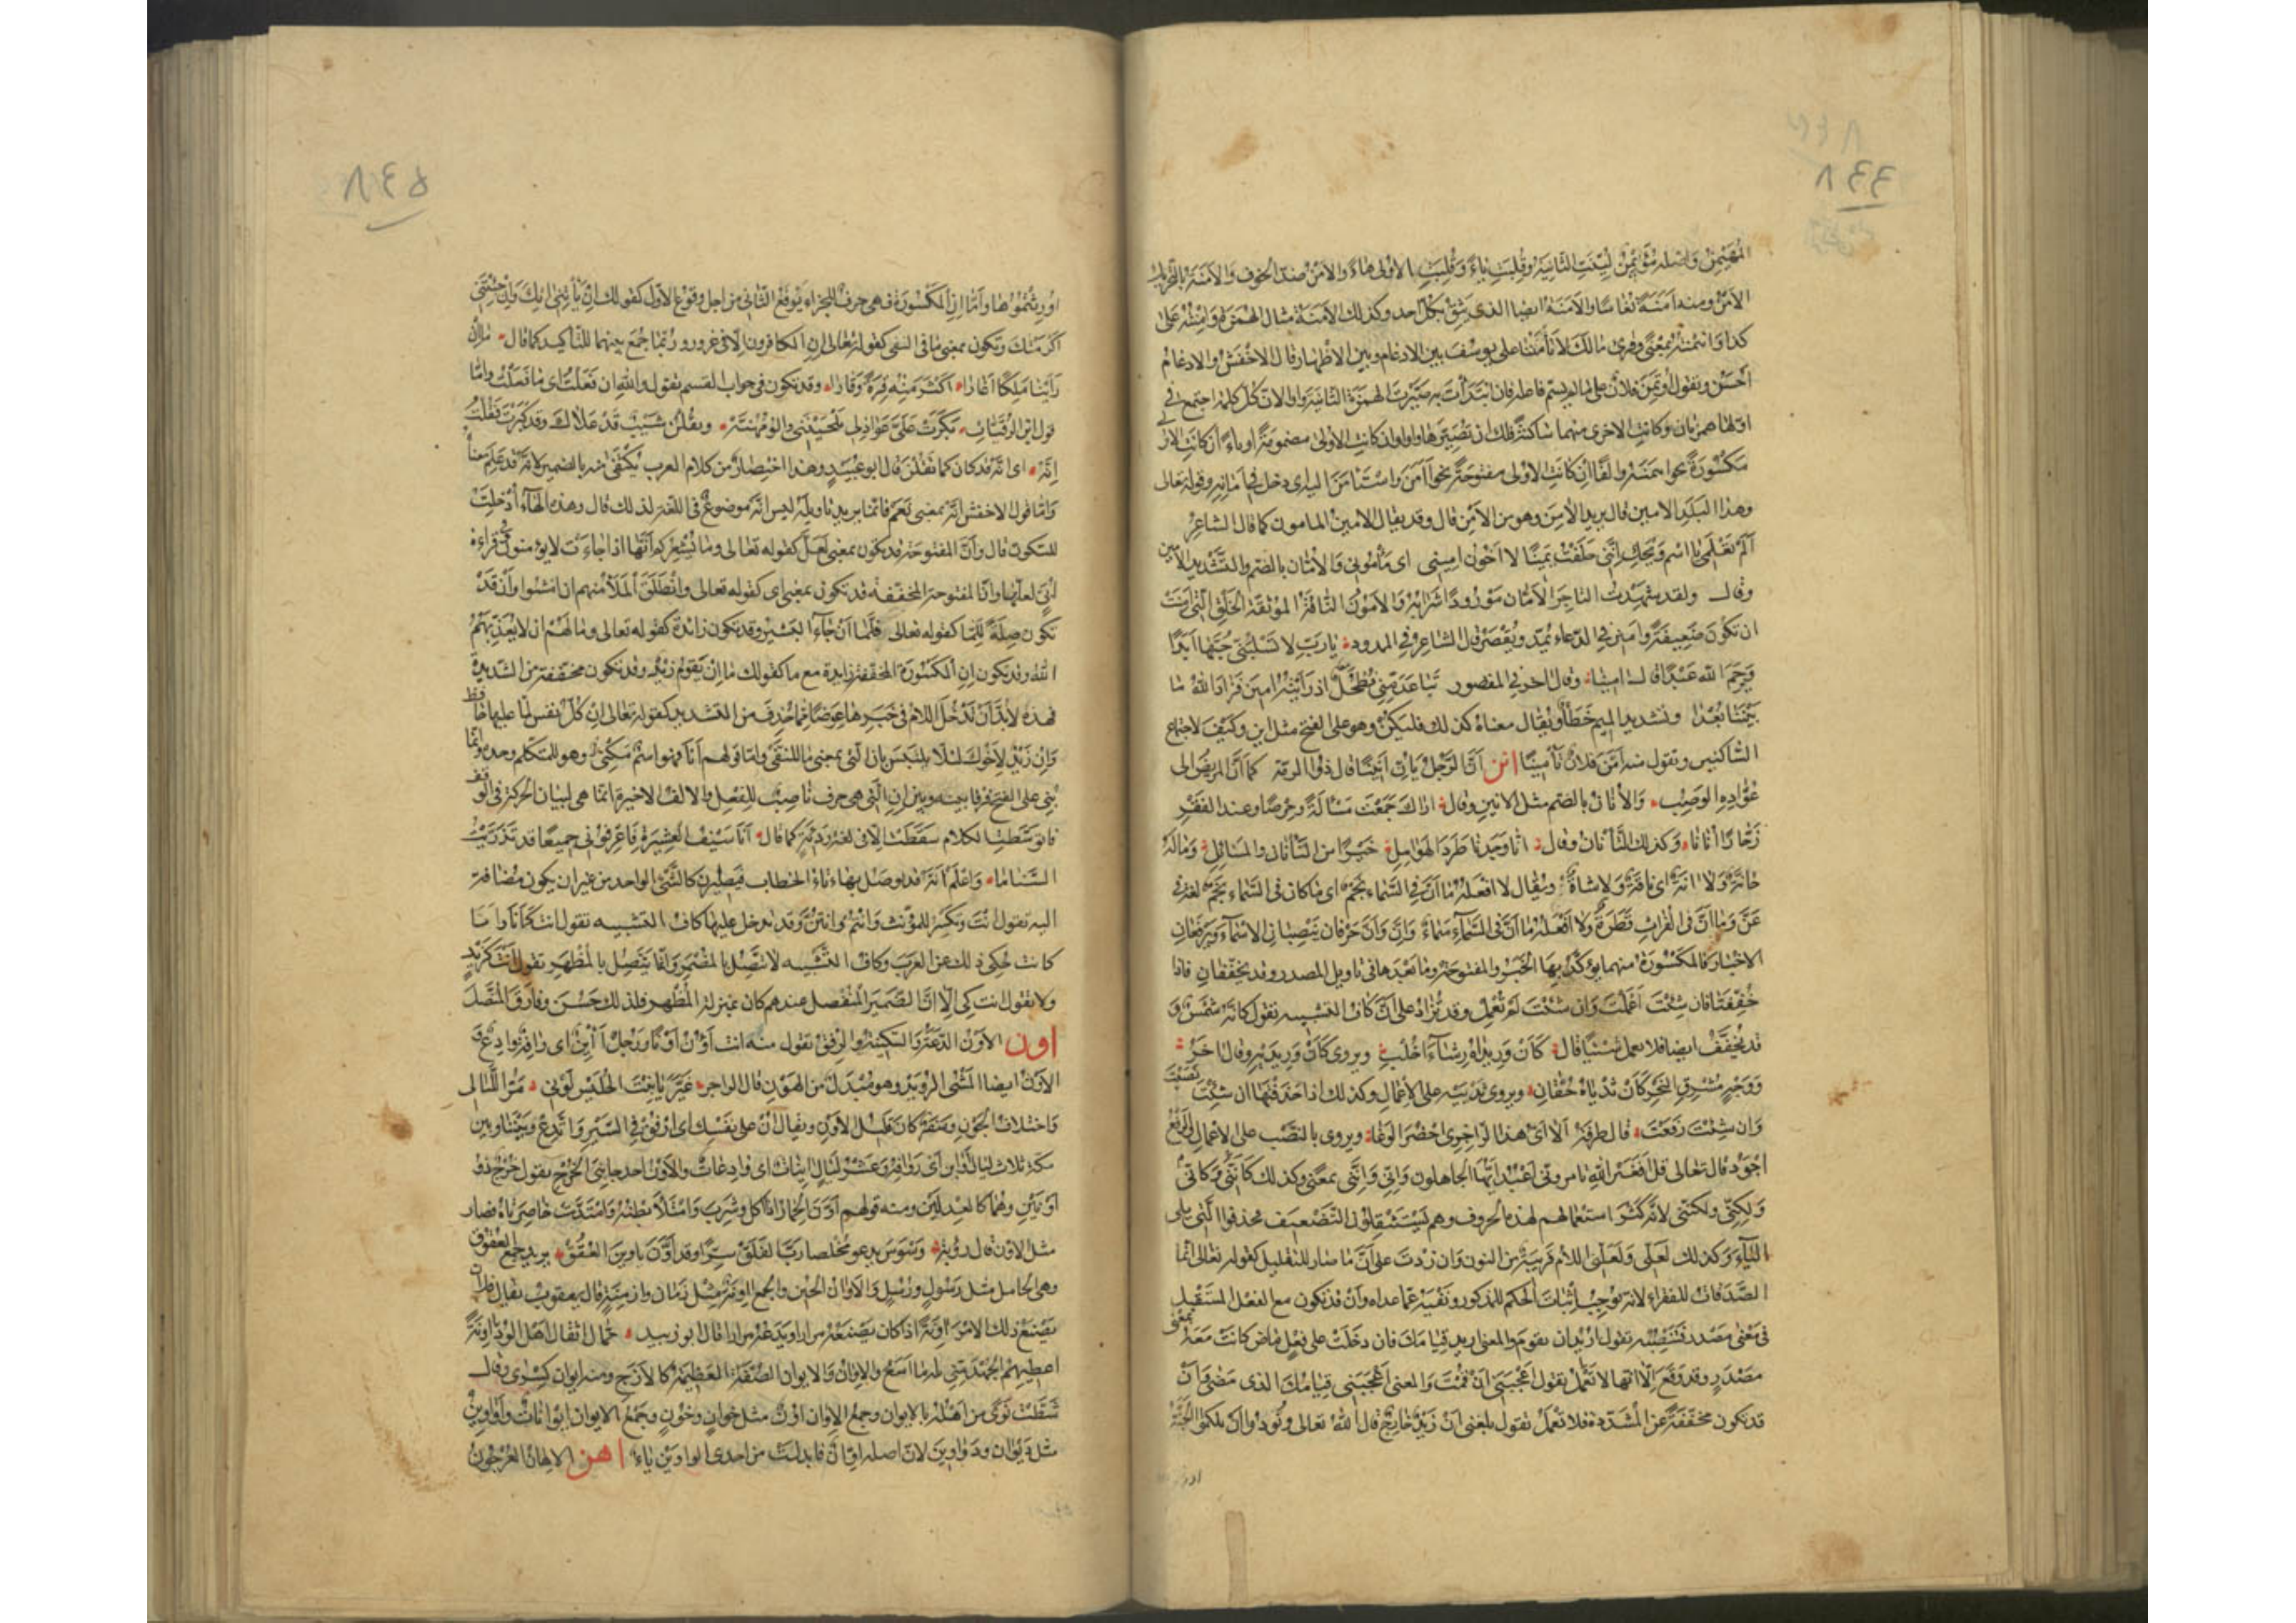 ٨٤٤
المهيمن واصله مؤأمن لينت الثانية وقلبت ياء وقلبت الاولى هاء والامن ضد الخوف والامنة بالتحريك
الامن ومنه امنة نعاسا والامنة ايضا الذى يثق بكل احد وكذلك الامنة مثال الهمزة وامنته على
كذا وائتمنته بمعنى وقرئ مالك لا تأمننا على يوسف بين الادغام وبين الاظهار قال الاخفش والادغام
احسن وتقول اؤتمن فلان على ما لم يسم فاعله فان ابتدأت به صيرت الهمزة الثانية واوا لان كل كلمة اجتمع فى
اولها همزتان وكانت الاخرى منهما ساكنة فلك ان تصيرها واوا ان كانت الاولى مضمومة او ياء ان كانت الاولى
مكسورة نحو ايتمنه والفا ان كانت الاولى مفتوحة نحو آمن واستأمن اليه اى دخل فى امانه وقوله تعالى
وهذا البلد الامين قال يريد الآمن وهو من الامن قال وقد يقال الامين المأمون كما قال الشاعر
الم تعلمى يا اسم ويحك اننى حلفت يمينا لا اخون امينى اى مأمونى والأمان بالضم والتشديد الامين
وقال ولقد شهدت التاجر الأمان مورودا شرابه والامون الناقة الموثقة الخلق التى امنت
ان تكون ضعيفة وامين فى الدعاء يمد ويقصر قال الشاعر فى الممدود يا رب لا تسلبنى حبها ابدا
ويرحم الله عبدا قال امينا وقال اخر فى المقصور تباعد منى فطحل اذ رأيته امين فزاد الله ما
بيننا بعدا وتشديد الميم خطأ ويقال معناه كذلك فليكن وهو على الفتح مثل اين وكيف لاجتماع
الساكنين وتقول منه امن فلان تأمينا انن ان الرجل يان انينا قال ذو الرمة كما ان المريض الى
عواده الوصب والأنان بالضم مثل الانين وقال اراك جمعت مسألة وحرصا وعند الفقر
زحارا أنانا وكذلك التأنان وقال انا وجدنا طرد الهوامل خيرا من التأنان والمسائل وماله
حانة ولا آنة اى ناقة ولا شاة ويقال لا افعله ما ان فى السماء نجم اى ما كان فى السماء نجم لغة فى
عن وما ان فى الفرات قطرة ولا افعله ما ان فى السماء سماء وان وان حرفان ينصبان الاسماء ويرفعان
الاخبار فالمكسورة منهما يؤكد بها الخبر والمفتوحة وما بعدها فى تاويل المصدر وقد يخففان فاذا
خففتا فان شئت اعملت وان شئت لم تعمل وقد تزاد على ان كاف التشبيه تقول كانه شمس و
قد تخفف ايضا فلا تعمل شيئا قال كأن وريداه رشاء خلب ويروى كأن وريديه وقال اخر
ووجه مشرق النحر كأن ثدياه حقان ويروى ثدييه على الاعمال وكذلك اذا حذفتها ان شئت نصبت
وان شئت رفعت قال طرفة الا اى هذا الزاجرى احضر الوغا ويروى بالنصب على الاعمال والرفع
اجود قال تعالى قل افغير الله تامرونى اعبد ايها الجاهلون وانى واننى بمعنى وكذلك كاننى وكانى
ولكنى ولكننى لانه كثر استعمالهم لهذه الحروف وهم يستثقلون التضعيف فحذفوا التى تلى
الياء وكذلك لعلى ولعلنى اللام قريبة من النون وان زدت على ان ما صار للتقليل كقوله تعالى انما
الصدقات للفقراء لانه يوجب اثبات الحكم للمذكور ونفيه عما عداه وان قد تكون مع الفعل المستقبل
فى معنى مصدر فتنصبه تقول اريد ان تقوم والمعنى اريد قيامك فان دخلت على فعل ماض كانت معه بمعنى
مصدر وقد وقع الا انها لا تعمل تقول اعجبنى ان قمت والمعنى اعجبنى قيامك الذى مضى وان
قد تكون مخففة عن المشددة فلا تعمل تقول بلغنى ان زيد خارج قال الله تعالى ونودوا ان تلكم الجنة
٨٤٥
اورثتموها واما ان المكسورة فهى حرف للجزاء يوقع الثانى من اجل وقوع الاول كقولك ان تأتنى اتك وان جئتنى
اكرمتك وتكون بمعنى ما فى النفى كقوله تعالى ان الكافرون الا فى غرور وربما جمع بينهما للتأكيد كما قال ما ان
رأينا ملكا اغارا اكثر منه قرة وقارا وقد تكون فى جواب القسم تقول والله ان فعلت اى ما فعلت واما
قول ابن الرقيات بكرت على عواذلى يلحيننى والومهنه ويقلن شيب قد علاك وقد كبرت فقلت
انه اى انه قد كان كما تقلن قال ابو عبيد وهذا اختصار من كلام العرب يكتفى منه بالضمير لانه قد علم معناه
واما قول الاخفش انه بمعنى نعم فانما يريد تأويله ليس انه موضوع فى اللغة لذلك قال وهذه الهاء ادخلت
للسكون قال وان المفتوحة قد تكون بمعنى لعل كقوله تعالى وما يشعركم انها اذا جاءت لا يؤمنون وفى قراءة
ابى لعلها وان المفتوحة المخففة قد تكون بمعنى اى كقوله تعالى وانطلق الملأ منهم ان امشوا وان قد
تكون صلة للما كقوله تعالى فلما ان جاء البشير وقد تكون زائدة كقوله تعالى وما لهم ان لا يعذبهم
الله وقد تكون ان المكسورة المخففة زايدة مع ما كقولك ما ان يقوم زيد وقد تكون مخففة من الشديدة
فهذه لا بد ان تدخل اللام فى خبرها عوضا مما حذف من التشديد كقوله تعالى ان كل نفس لما عليها حافظ
وان زيد لاخوك لئلا يلتبس بان التى بمعنى ما للنفى واما قولهم انا فهو اسم مكنى وهو للمتكلم وحده وانما
بنى على الفتح فرقا بينه وبين ان التى هى حرف ناصب للفعل والالف الاخيرة انما هى لبيان الحركة فى الوقف
فان توسطت الكلام سقطت الا فى لغة ردئة كما قال انا سيف العشيرة فاعرفونى جميعا قد تذريت
السناما واعلم انه قد يوصل بهاء تاء الخطاب فيصيران كالشئ الواحد من غير ان يكون مضافة
اليه تقول انت وتكسر للمؤنث وانتم وانتن وقد تدخل عليها كاف التشبيه تقول انت كانا وانا
كانت حكى ذلك عن العرب وكاف التشبيه لا تتصل بالمضمر وانما يتصل بالمظهر تقول انت كزيد
ولا تقول انت كى الا ان الضمير المنفصل عندهم كان بمنزلة المظهر فلذلك حسن وفارق المتصل
اون الاون الدعة والسكينة والرفق تقول منه انت اؤن اونا ورجل آئن اى رافه وادع و
الاون ايضا المشى الرويد وهو مبدل من الهون قال الراجز غير يا بنت الحليس لونى مر الليالى
واختلاف الجون وسفر كان قليل الاون ويقال أن على نفسك اى ارفق فى السير واتدع وبيننا وبين
مكة ثلاث ليال اواين اى روافه وعشر ليال اينات اى وادعات والاون احد جانبى الخرج تقول خرج ذو
اونين وهما كالعدلين ومنه قولهم اون الحمار اذا اكل وشرب وامتلأ بطنه وامتدت خاصرتاه فصار
مثل الاون قال رؤبة وسوس يدعو مخلصا رب الفلق سرا وقد اون تاوين العقق يريد جمع العقوق
وهى الحامل مثل رسول ورسل والاوان الحين والجمع اونة مثل زمان وازمنة قال يعقوب يقال فلان
يصنع ذلك الامر اونة اذا كان يصنعه مرارا ويدعه مرارا قال ابو زبيد حمال اثقال اهل الود اونة
اعطيهم الجهد منى بله ما اسع والاوان والايوان الصفة العظيمة كالازج ومنه ايوان كسرى وقال
شطت نوى من اهله بالايوان وجمع الاوان اون مثل خوان وخون وجمع الايوان ايوانات واواوين
مثل ديوان ودواوين لان اصله اوان فابدلت من احدى الواوين ياء اهن الاهان العرجون